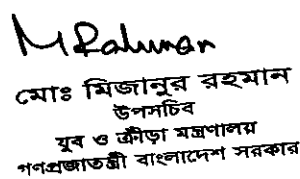 MRahman
মোঃ মিজানুর রহমান
উপসচিব
যুব ও ক্রীড়া মন্ত্রণালয়
গণপ্রজাতন্ত্রী বাংলাদেশ সরকার